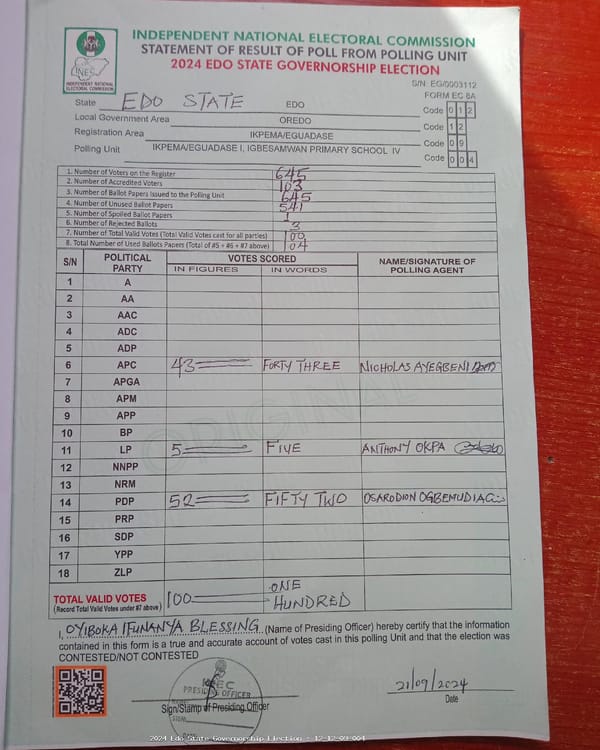 INDEPENDENT NATIONAL ELECTORAL COMMISSION
STATEMENT OF RESULT OF POLL FROM POLLING UNIT
2024 EDO STATE GOVERNORSHIP ELECTION
INEC
INDEPENDENT NATIONAL ELECTORAL COMMISSION
S/N: EG/0003112
FORM EC 8A
State EDO STATE EDO Code 0 1 2
Local Government Area OREDO Code 1 2
Registration Area IKPEMA/EGUADASE Code 0 9
Polling Unit IKPEMA/EGUADASE I, IGBESAMWAN PRIMARY SCHOOL IV Code 0 0 4
1. Number of Voters on the Register 645
2. Number of Accredited Voters 103
3. Number of Ballot Papers Issued to the Polling Unit 645
4. Number of Unused Ballot Papers 541
5. Number of Spoiled Ballot Papers 1
6. Number of Rejected Ballots 3
7. Number of Total Valid Votes (Total Valid Votes cast for all parties) 100
8. Total Number of Used Ballots Papers (Total of #5 + #6 + #7 above) 104
S/N POLITICAL PARTY VOTES SCORED NAME/SIGNATURE OF POLLING AGENT
IN FIGURES IN WORDS
1 A
2 AA
3 AAC
4 ADC
5 ADP
6 APC 43 FORTY THREE NICHOLAS AYEGBENI
7 APGA
8 APM
9 APP
10 BP
11 LP 5 FIVE ANTHONY OKPA
12 NNPP
13 NRM
14 PDP 52 FIFTY TWO OSARODION OGBEMUDIA
15 PRP
16 SDP
17 YPP
18 ZLP
ORIGINAL
TOTAL VALID VOTES 100 ONE HUNDRED
(Record Total Valid Votes under #7 above)
I, OYIBOKA IFUNANYA BLESSING (Name of Presiding Officer) hereby certify that the information
contained in this form is a true and accurate account of votes cast in this polling Unit and that the election was
CONTESTED/NOT CONTESTED
INEC
PRESIDING OFFICER
Sign/Stamp of Presiding Officer
21/09/2024
Date
2024 Edo State Governorship Election - 12-12-09-004